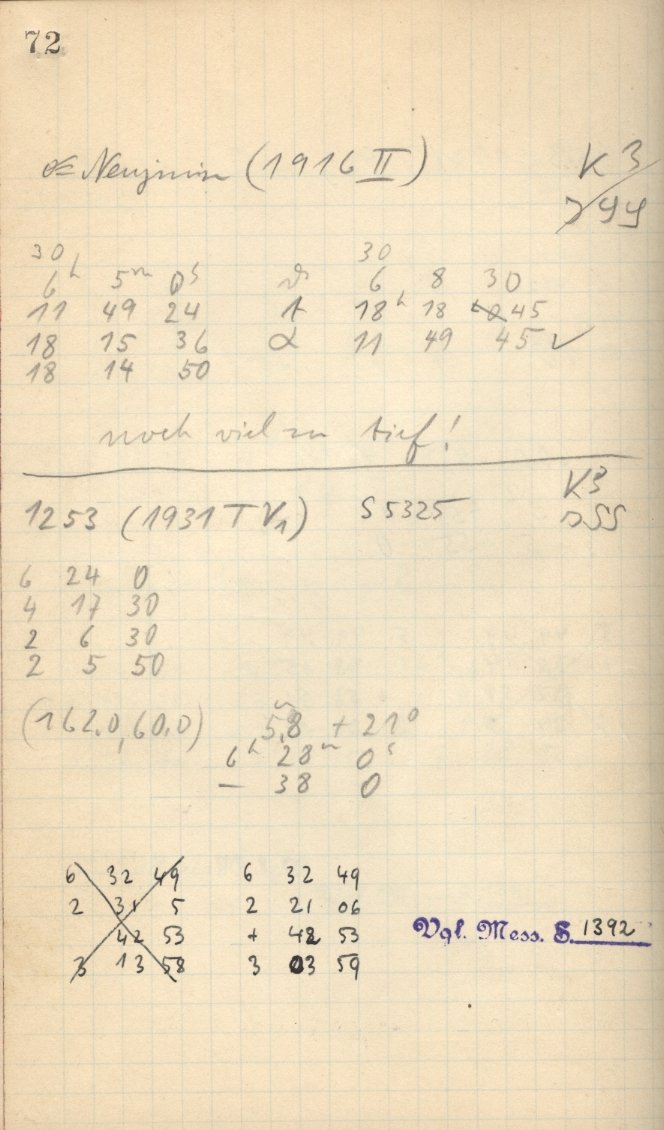 72
☄ Neujmin (1916 II) K 3
30
6ʰ 5ᵐ 0ˢ
11 49 24
18 15 36
18 14 50
30
ϑ 6 8 30
t 18ʰ 18 45
α 11 49 45 ✓
noch viel zu tief!
1253 (1931 TV₁) S 5325 K3
6 24 0
4 17 30
2 6 30
2 5 50
(162.0, 60.0) 5,8 + 21°
6ʰ 28ᵐ 0ˢ
– 38 0
6 32 49
2 31 5
42 53
3 13 58
6 32 49
2 21 06
+ 42 53
3 03 59
Vgl. Mess. S. 1392